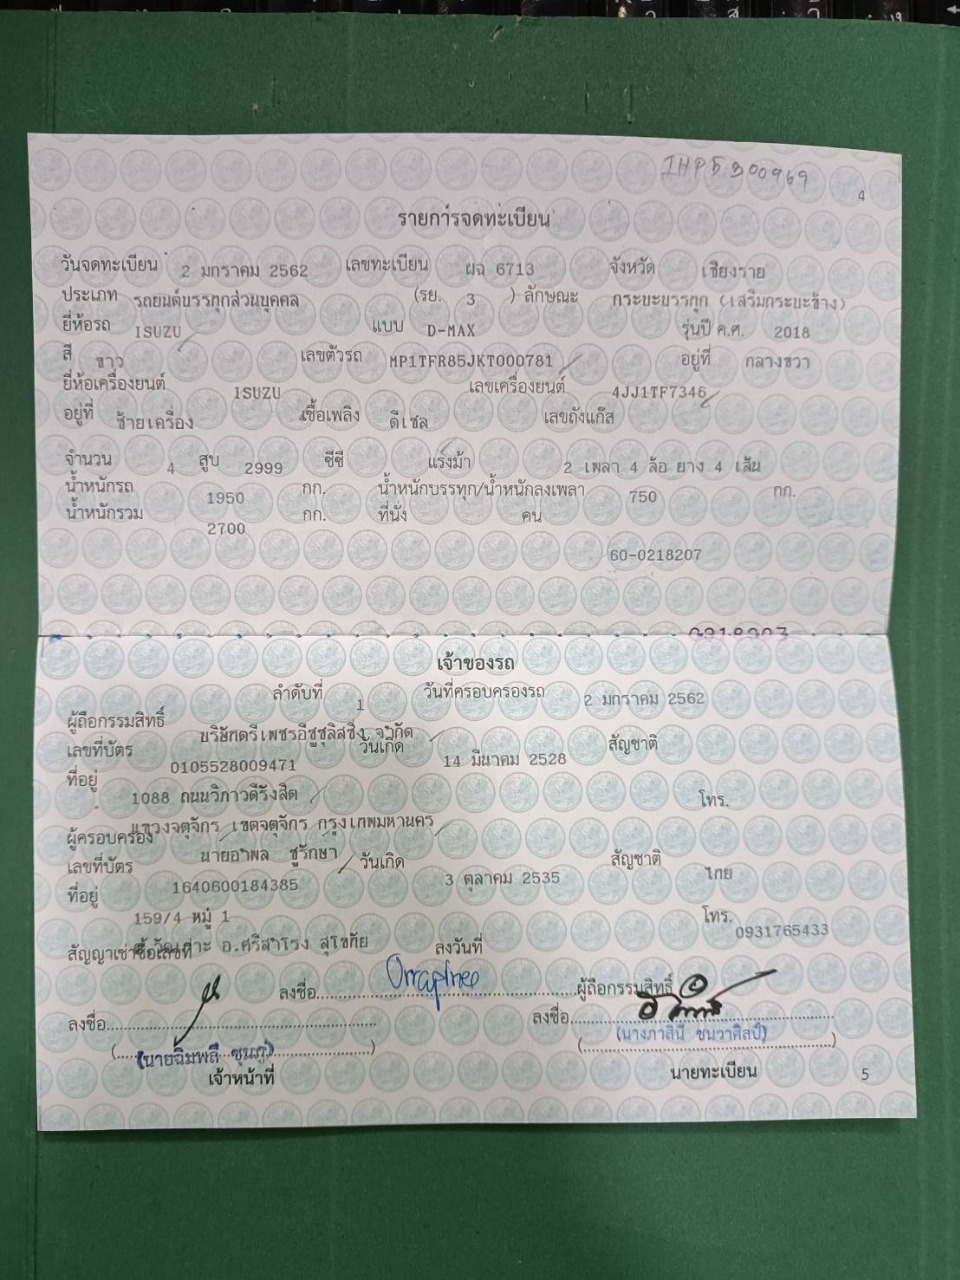 IHP5300969
4
รายการจดทะเบียน
วันจดทะเบียน 2 มกราคม 2562 เลขทะเบียน ผฉ 6713 จังหวัด เชียงราย
ประเภท รถยนต์บรรทุกส่วนบุคคล (รย. 3 ) ลักษณะ กระบะบรรทุก (เสริมกระบะข้าง)
ยี่ห้อรถ ISUZU แบบ D-MAX รุ่นปี ค.ศ. 2018
สี ขาว เลขตัวรถ MP1TFR85JKT000781 อยู่ที่ กลางขวา
ยี่ห้อเครื่องยนต์ ISUZU เลขเครื่องยนต์ 4JJ1TF7346
อยู่ที่ ซ้ายเครื่อง เชื้อเพลิง ดีเซล เลขถังแก๊ส
จำนวน 4 สูบ 2999 ซีซี แรงม้า 2 เพลา 4 ล้อ ยาง 4 เส้น
น้ำหนักรถ 1950 กก. น้ำหนักบรรทุก/น้ำหนักลงเพลา 750 กก.
น้ำหนักรวม 2700 กก. ที่นั่ง คน
60-0218207
0218207
เจ้าของรถ
ลำดับที่ 1 วันที่ครอบครองรถ 2 มกราคม 2562
ผู้ถือกรรมสิทธิ์ บริษัทตรีเพชรอีซูซุลิสซิ่ง จำกัด
เลขที่บัตร 0105528009471 วันเกิด 14 มีนาคม 2528 สัญชาติ
ที่อยู่ 1088 ถนนวิภาวดีรังสิต โทร.
แขวงจตุจักร เขตจตุจักร กรุงเทพมหานคร
ผู้ครอบครอง นายอำพล ชูรักษา
เลขที่บัตร 1640600184385 วันเกิด 3 ตุลาคม 2535 สัญชาติ ไทย
ที่อยู่ 159/4 หมู่ 1 โทร. 0931765433
ต.วังเกาะ อ.ศรีสำโรง สุโขทัย
สัญญาเช่าซื้อเลขที่ ลงวันที่
ลงชื่อ ผู้ถือกรรมสิทธิ์
ลงชื่อ ลงชื่อ
(นายฉิมพลี ) (นางภาลินี ชนวาศิลป์)
เจ้าหน้าที่ นายทะเบียน
5